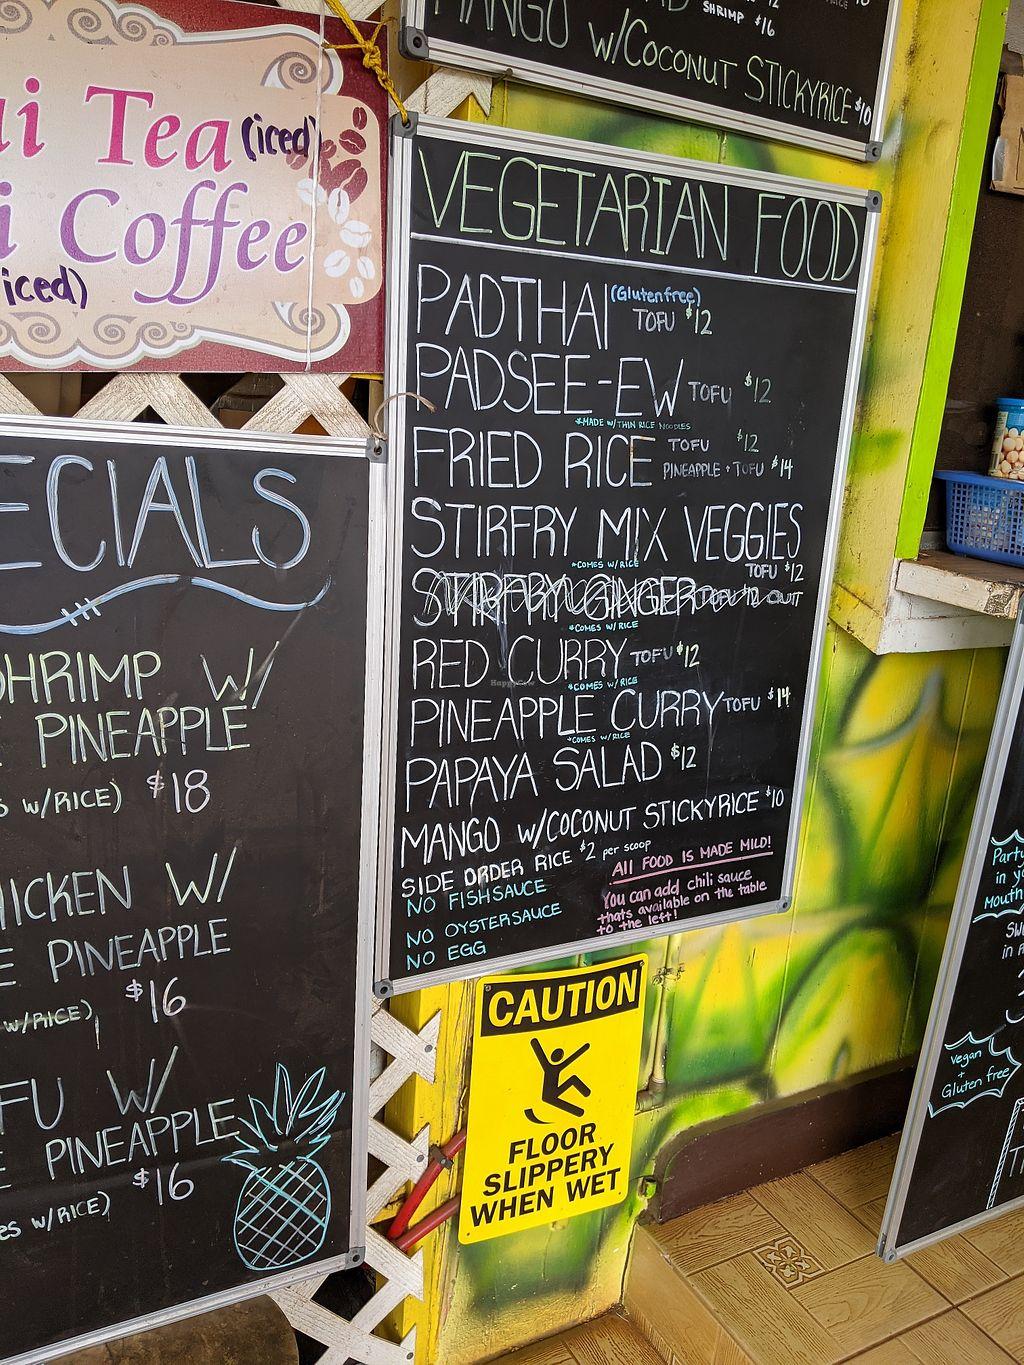 SHRIMP $16
MANGO w/COCONUT STICKYRICE $10
Tea (iced)
Coffee
iced)
VEGETARIAN FOOD
PADTHAI (Gluten free) TOFU $12
PADSEE-EW TOFU $12
*MADE W/ THIN RICE NOODLES
FRIED RICE TOFU $12
PINEAPPLE + TOFU $14
STIRFRY MIX VEGGIES
*COMES W/ RICE TOFU $12
STIRFRY GINGER TOFU $12 OUT
*COMES W/ RICE
RED CURRY TOFU $12
*COMES W/ RICE
PINEAPPLE CURRY TOFU $14
*COMES W/ RICE
PAPAYA SALAD $12
MANGO w/COCONUT STICKYRICE $10
SIDE ORDER RICE $2 per scoop
NO FISHSAUCE
NO OYSTERSAUCE
NO EGG
All FOOD IS MADE MILD!
You can add chili sauce
thats available on the table
to the left!
ECIALS
SHRIMP W/
PINEAPPLE
W/RICE) $18
HICKEN W/
E PINEAPPLE
W/RICE) $16
FU W/
E PINEAPPLE
es W/RICE) $16
CAUTION
FLOOR
SLIPPERY
WHEN WET
Party
in yo
Mouth
Vegan
+
Gluten free
HappyCow